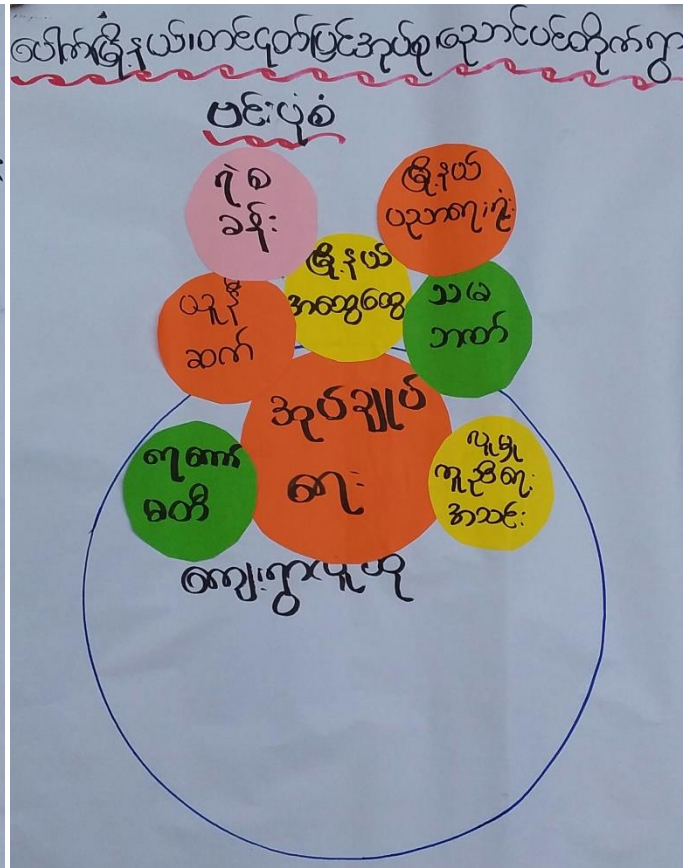 ပေါက်မြို့နယ်၊တင်ငုတ်ပြင်အုပ်စု၊ညောင်ပင်တိုက်ရွာ
ဗင်းပုံစံ
ရဲစ
ခန်း
မြို့နယ်
ပညာရေးရုံး
မြို့နယ်
အထွေထွေ
ယူနီ
ဆက်
သမ
ဘဏ်
အုပ်ချုပ်
ရေး
ရေကော်
မတီ
လူမှု
ကူညီရေး
အသင်း
ကျေးရွာလူထု